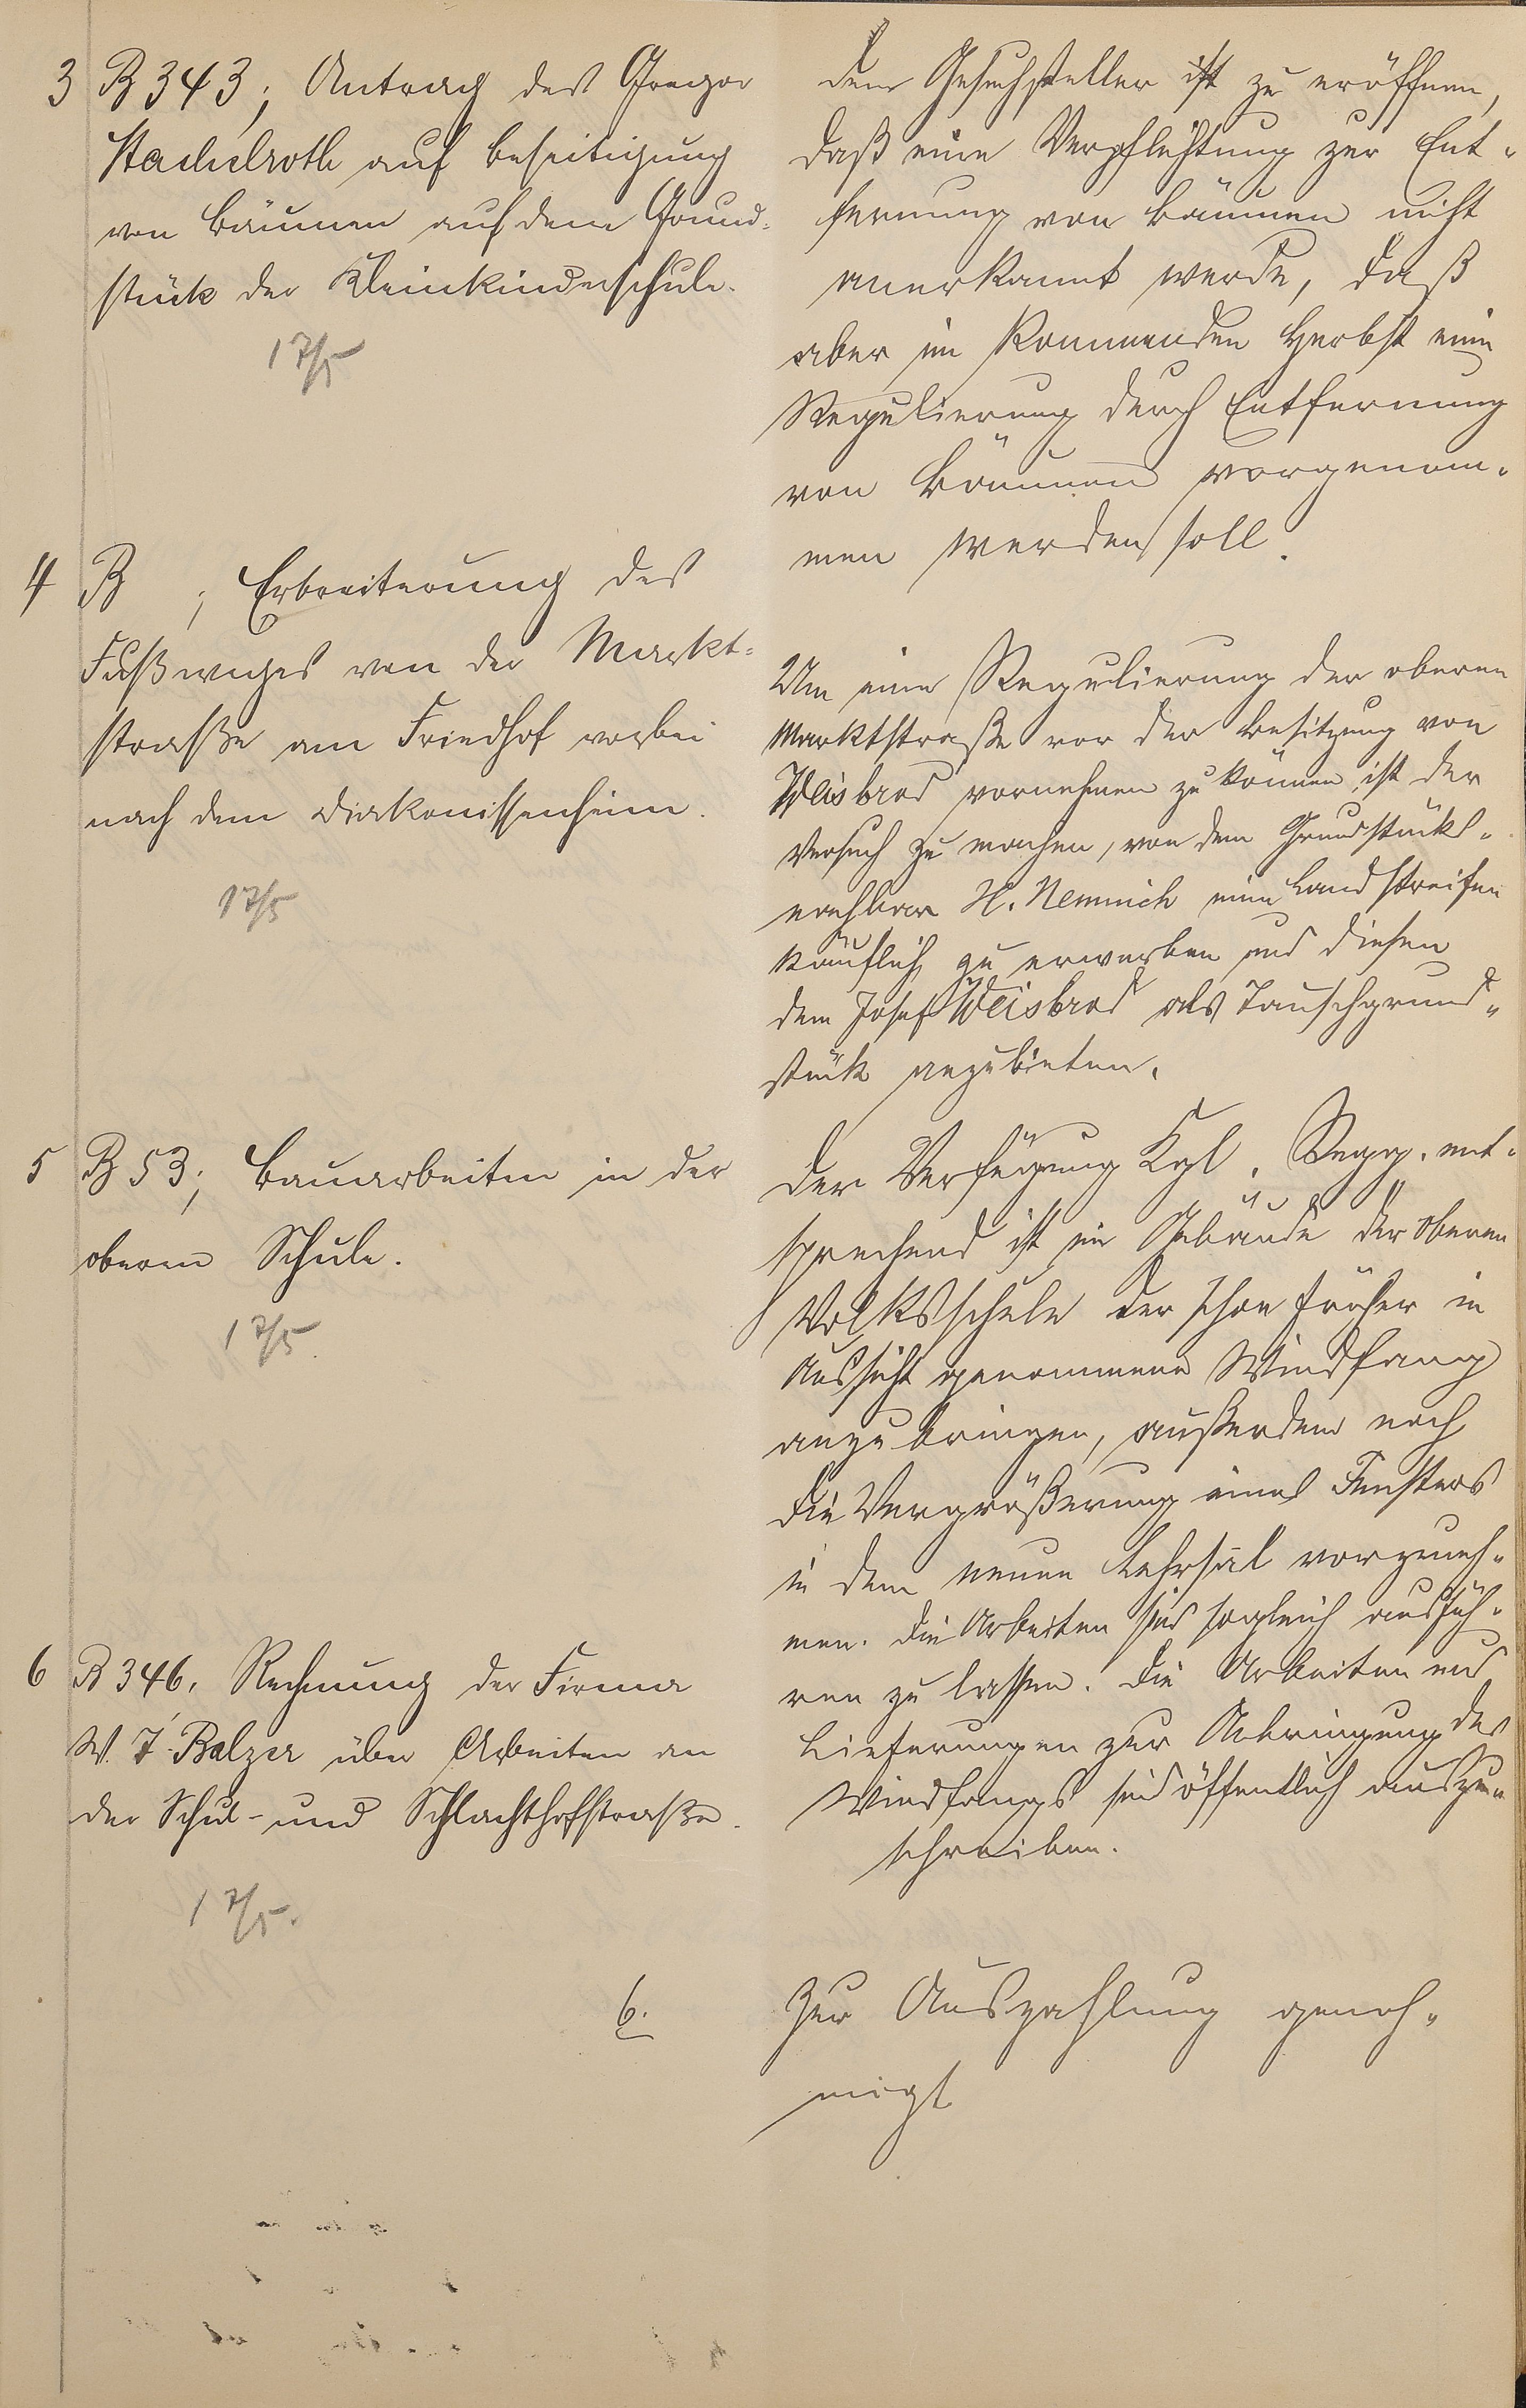 3 B 343; Antrag des Gregor
Stachelroth auf Beseitigung
von Bäumen auf dem Grund-
stück der Kleinkinderschule.
17/5
Dem Gesuchsteller ist zu eröffnen,
daß eine Verpflichtung zur Ent-
fernung von Bäumen nicht
anerkannt werde, daß
aber im kommenden Herbst eine
Regulierung durch Entfernung
von Bäumen vorgenom-
men werden soll.
4 B ; Erbreiterung des
Fußweges von der Markt-
straße am Friedhof vorbei
nach dem Diakonissenheim.
17/5
Um eine Regulierung der oberen
Marktstraße vor der Besitzung von
Weisbrod vornehmen zu können, ist der
Versuch zu machen, von dem Grundstücks-
nachbar H. Nemnich einen Landstreifen
käuflich zu erwerben und diesen
dem Josef Weisbrod als Tauschgrund-
stück anzubieten.
5 B 53; Bauarbeiten in der
oberen Schule.
17/5.
Der Verfügung Kgl. Regg. ent-
sprechend ist im Gebäude der oberen
Volksschule der schon früher in
Aussicht genommene Windfang
anzubringen, außerdem noch
die Vergrößerung eines Fensters
in dem neuen Lehrsal vorzuneh-
men. Die Arbeiten sind sogleich ausfüh-
ren zu lassen. Die Arbeiten und
Lieferungen zur Anbringung des
Windfangs sind öffentlich auszu-
schreiben.
6 B 346. Rechnung der Firma
W. J. Balzer über Arbeiten an
der Schul- und Schlachthofstraße.
17/5.
6. Zur Auszahlung geneh-
migt